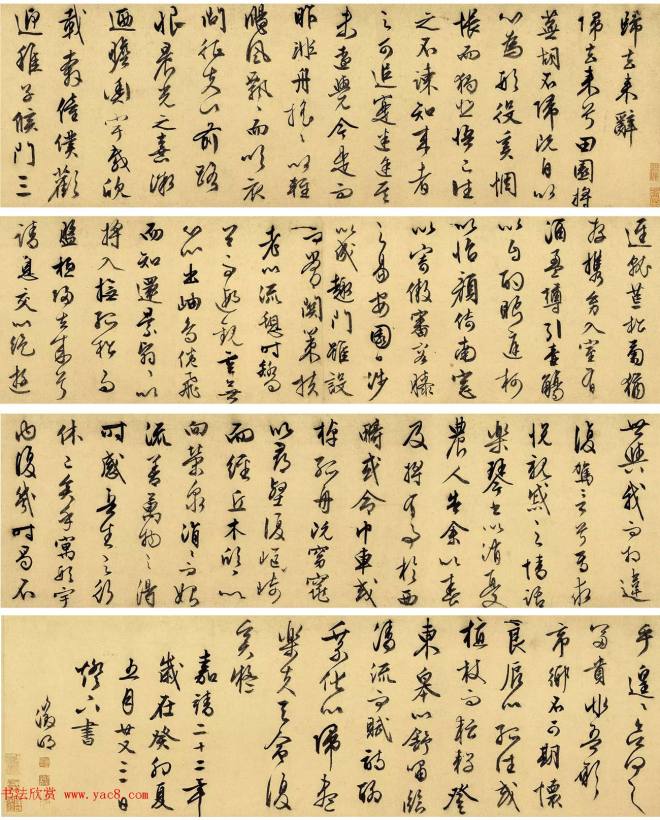 歸去來辭
歸去來兮田園將
蕪胡不歸既自以
心為形役奚惆
悵而獨悲悟已往
之不諫知來者
之可追寔迷途其
未遠覺今是而
昨非舟搖〻以輕
颺風飄〻而吹衣
問征夫以前路
恨晨光之熹微
迺瞻衡宇載欣
載奔僮僕歡
迎稚子候門三
逕就荒松菊猶
存攜幼入室有
酒盈樽引壺觴
以自酌眄庭柯
以怡顏倚南窗
以寄傲審容膝
之易安園日涉
以成趣門雖設
而常關策扶
老以流憩時矯
首而遐觀雲無
心以出岫鳥倦飛
而知還景翳〻以
將入撫孤松而
盤桓歸去來兮
請息交以絕遊
世與我而相違
復駕言兮焉求
悅親戚之情話
樂琴書以消憂
農人告余以春
及將有事於西
疇或命巾車或
棹孤舟既窈窕
以尋壑復崎嶇
而經丘木欣〻以
向榮泉涓〻而始
流善萬物之得
時感吾生之行
休已矣乎寓形宇
內復幾時曷不
乎遑〻欲何之
富貴非吾願
帝鄉不可期懷
良辰以孤往或
植杖而耘耔登
東皋以舒嘯臨
清流而賦詩聊
乘化以歸盡
樂夫天命復
奚疑
嘉靖二十二年
歲在癸卯夏
五月廿又二日
燈下書
徵明
书法欣赏 www.yac8.com